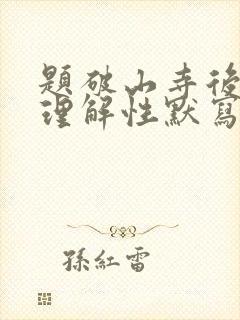 題破山寺後
理解性默寫
孫紅雷